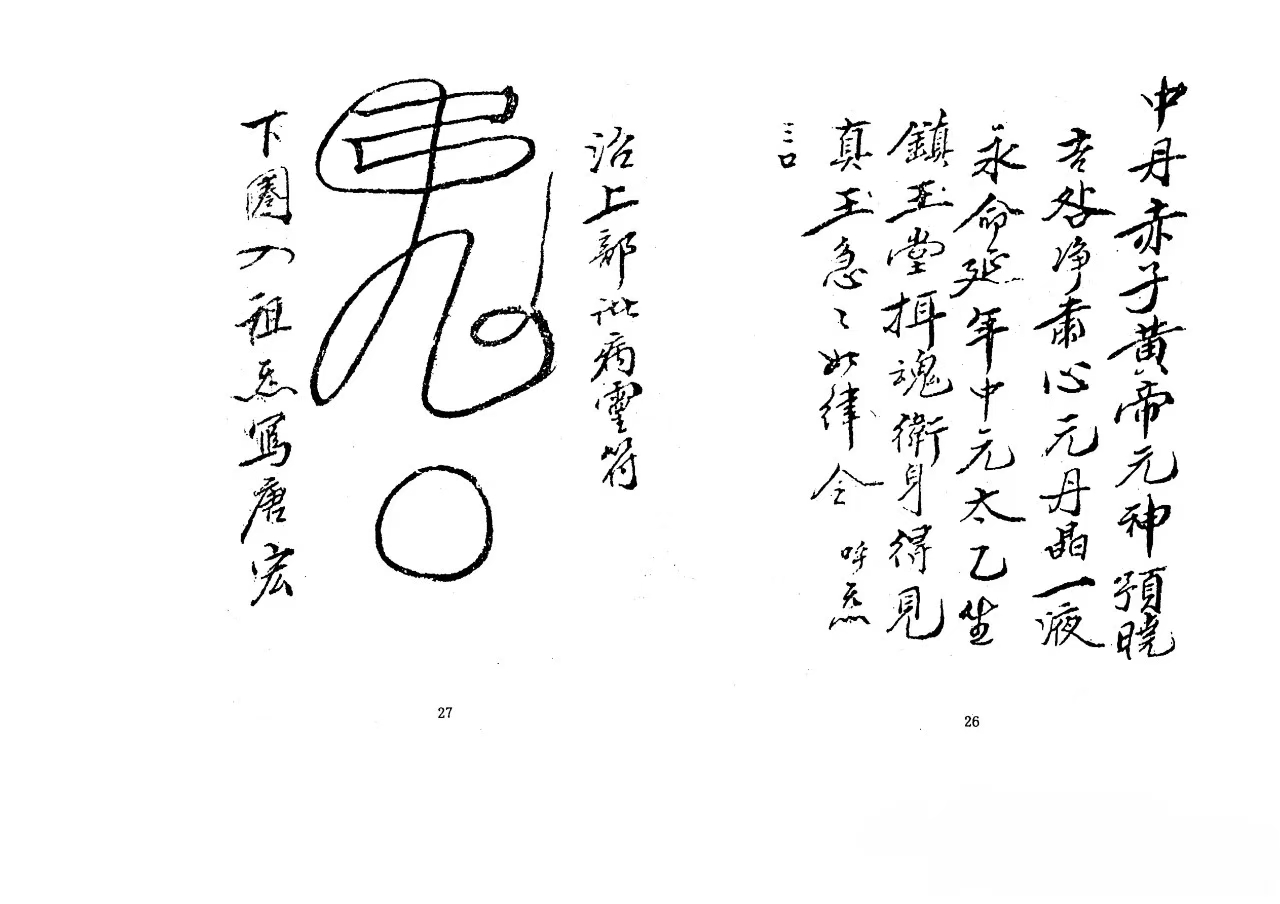 中丹赤子黄帝元神預曉
吉咎净肅心元丹晶一液
永命延年中元太乙生
鎮玉堂揖魂衛身得見
真玉急〻如律令 呼炁
三口
26
治上部此病靈符
下圈入祖炁寫唐宏
27